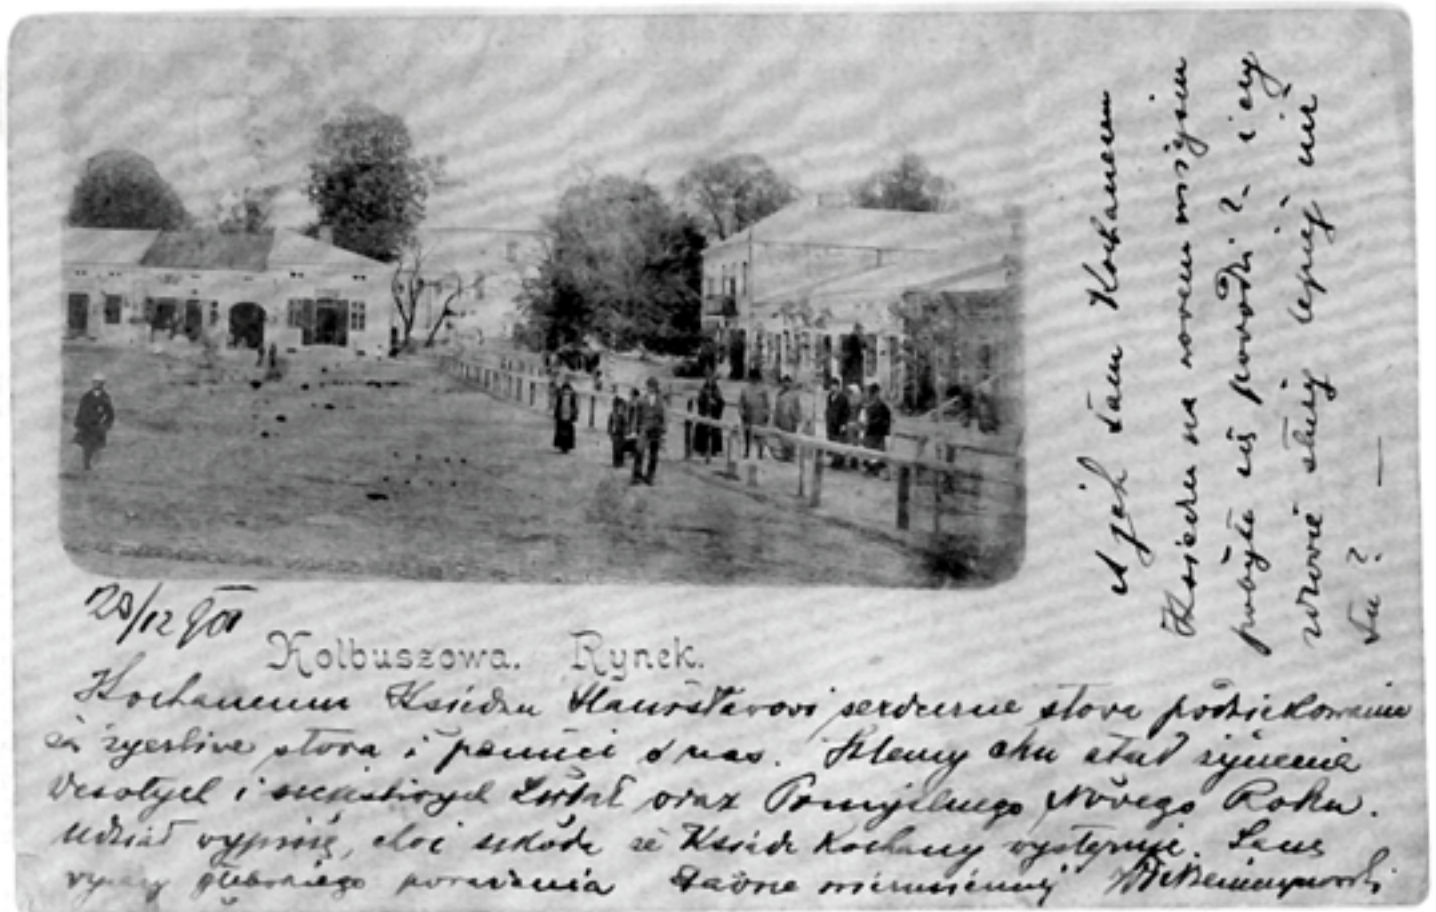 20/12 901
Kolbuszowa. Rynek.
Kochanemu Księdzu Stanisławowi serdeczne słowa podziękowania
za życzliwe słowa i pamięci o nas. Ślemy obu stąd życzenia
Wesołych i szczęśliwych Świąt oraz Pomyślnego Nowego Roku.
Udział wypiszę, choć szkoda że Ksiądz Kochany występuje. Łączę
wyrazy głębokiego poważania zawsze niezmienny
A jak tam Kochanemu
Księdzu na nowem miejscu
pobytu się powodzi? – i czy
zdrowie służy lepiej niż
tu? —